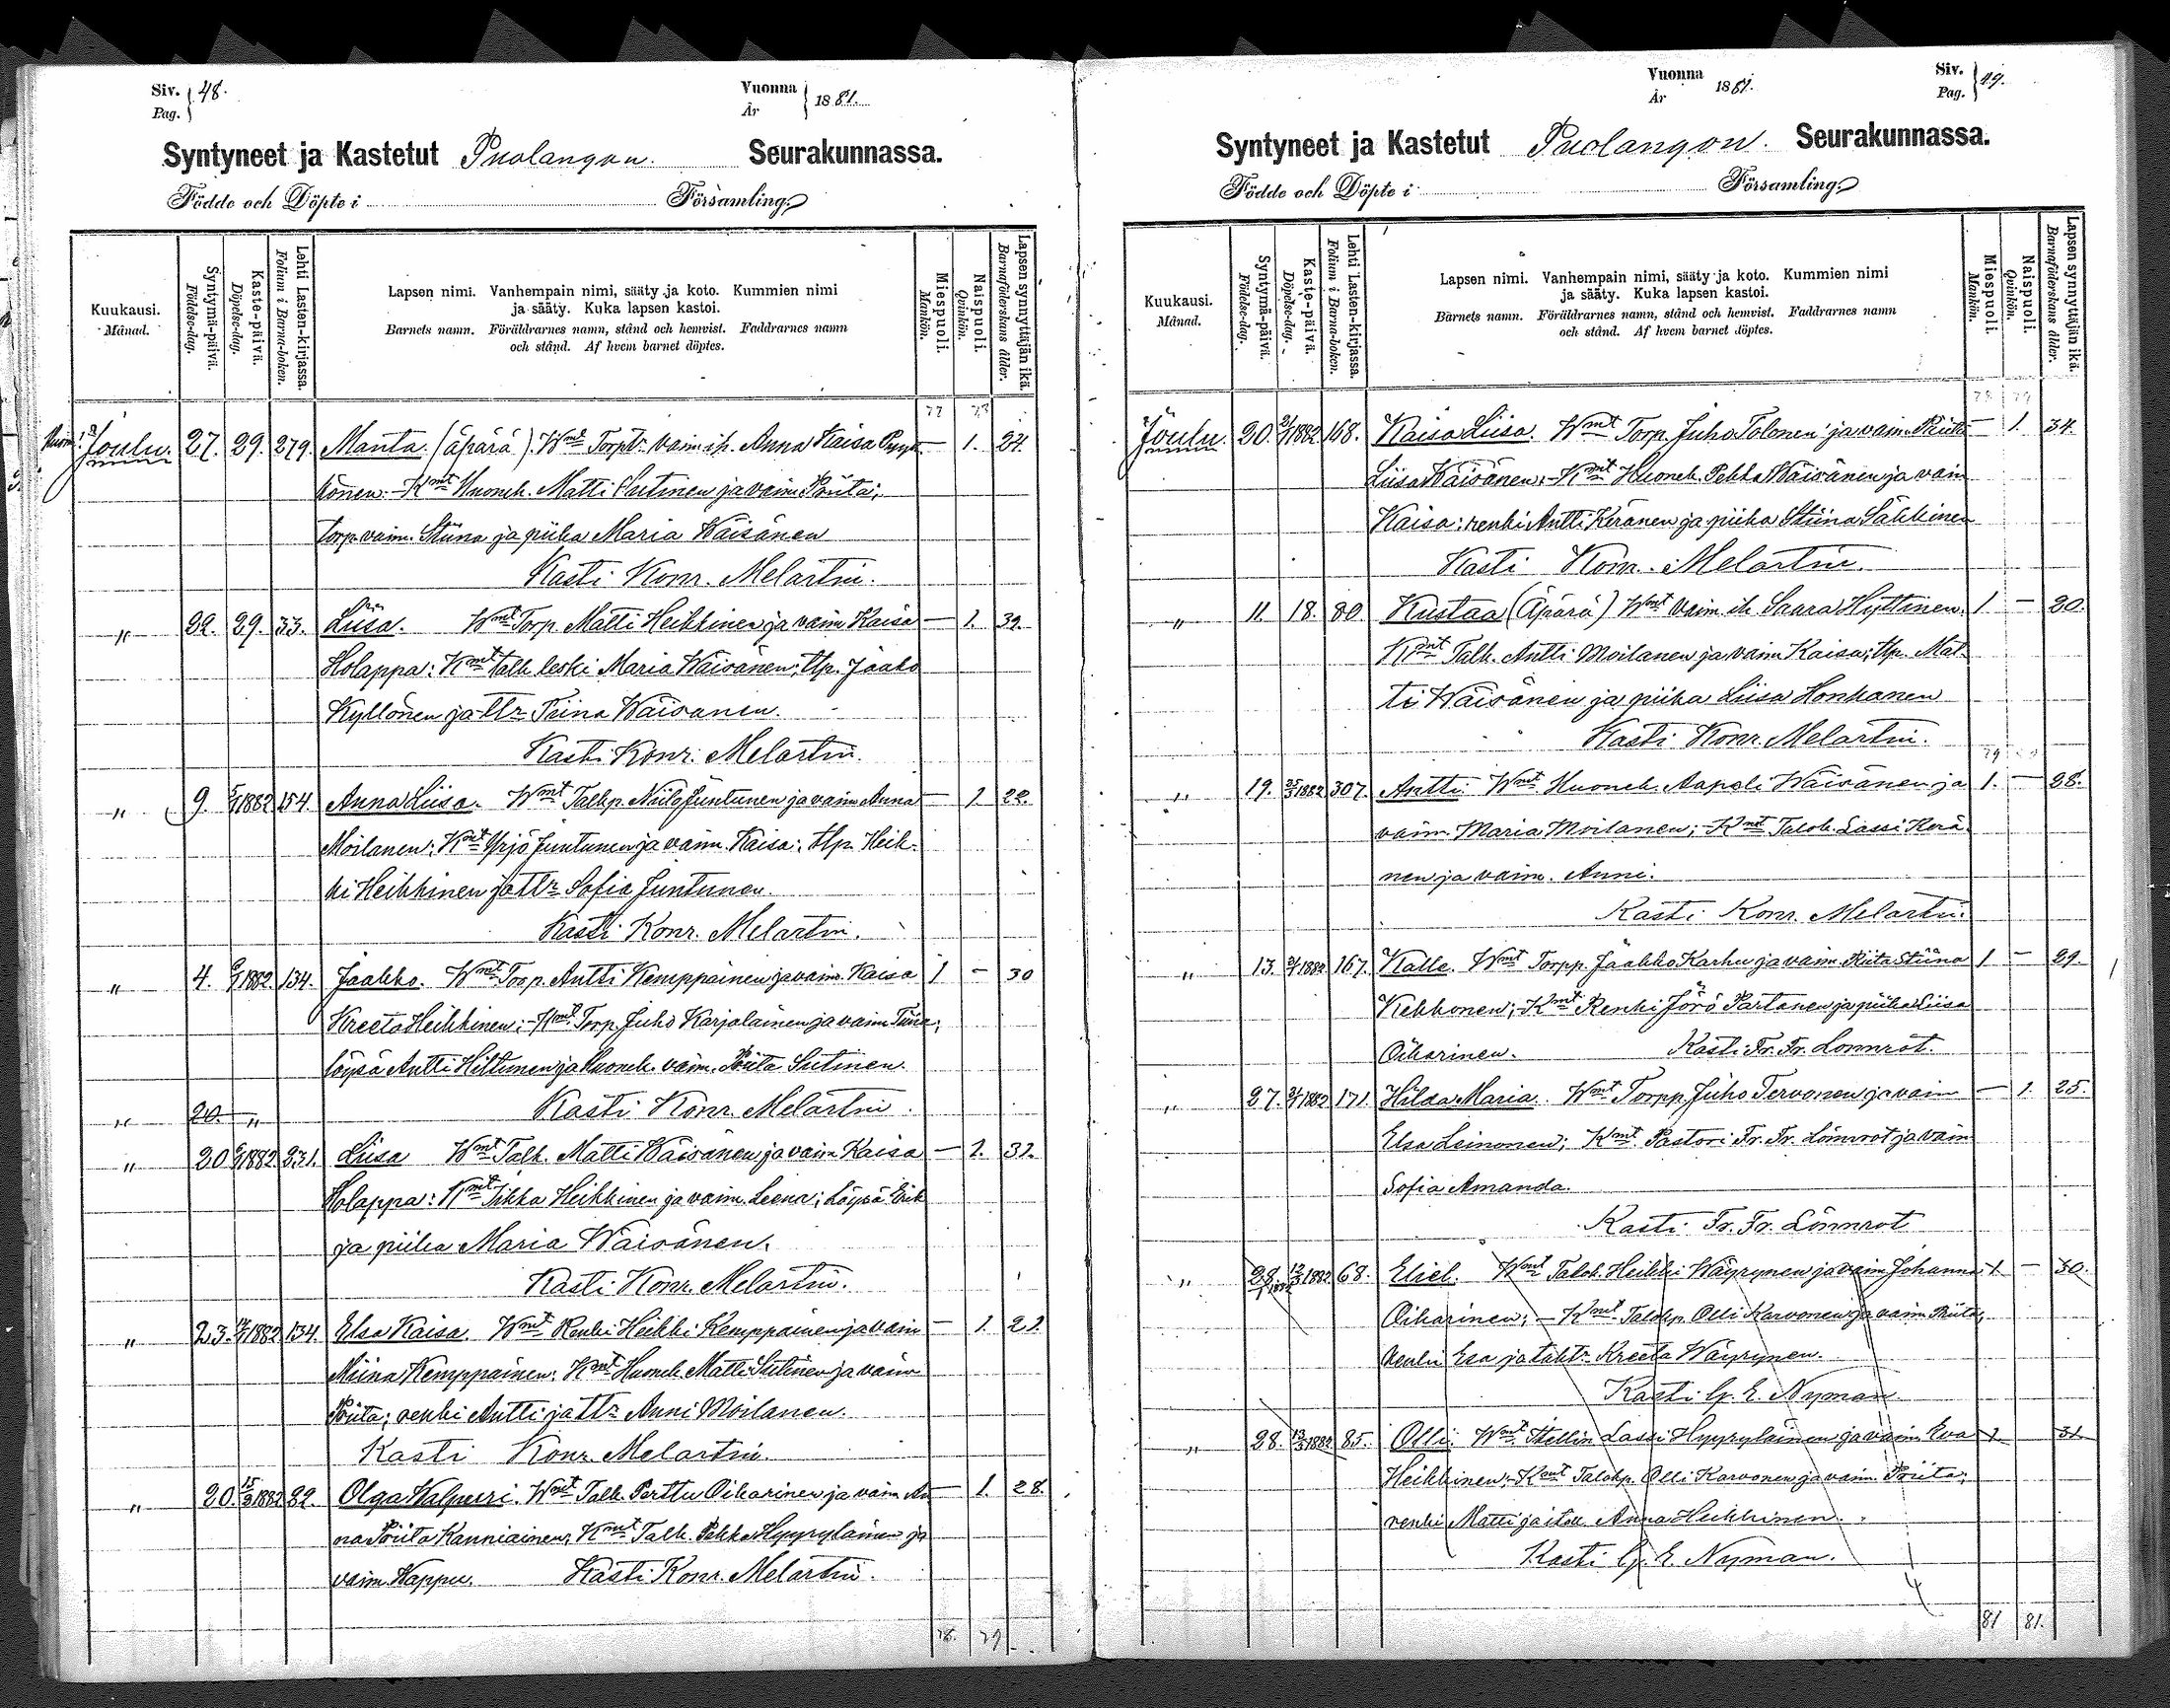 Siv. 48.
Pag.
Vuonna 1881.
År
Syntyneet ja Kastetut Puolangon Seurakunnassa.
Födde och Döpte i Församling.
Kuukausi.
Månad.
Syntymä-päivä.
Födelse-dag.
Kaste-päivä.
Döpelse-dag.
Lehti Lasten-kirjassa.
Folium i Barna-boken.
Lapsen nimi. Vanhempain nimi, sääty ja koto. Kummien nimi
ja sääty. Kuka lapsen kastoi.
Barnets namn. Föräldrarnes namn, stånd och hemvist. Faddrarnes namn
och stånd. Af hvem barnet döptes.
Miespuoli.
Mankön.
Naispuoli.
Qvinkön.
Lapsen synnyttäjän ikä.
Barnaföderskans ålder.
77 78
Joulu. 27. 29. 279. Manta. (äpärä). Wmt Torp. tr. vaim. ih. Anna Kaisa — 1. 24.
könen. Kmt Huoneh. Matti Sutinen ja vaim Riita;
torp. vaim. Stiina ja piika Maria Wäisänen
Kasti Konr. Melartin.
" 22. 29. 33. Liisa. Wmt Torp. Matti Heikkinen ja vaim Kaisa — 1. 39.
Holappa: Kmt talk. leski Maria Wäisänen; tlp. Jaako
Kyllönen ja ttr Tiina Wäisänen.
Kasti Konr. Melartin.
" 9. 5/1 1882 154. Anna Liisa. Wmt Talkp. Niilo Juntunen ja vaim Anna — 1 22.
Moilanen: Kmt Yrjö Juntunen ja vaim. Kaisa; tlp. Heik-
ki Heikkinen ja ttr Sofia Juntunen.
Kasti Konr. Melartin.
" 4. 6/1 1882. 134. Jaakko. Wmt Torp. Antti Kemppainen ja vaim. Kaisa 1 — 30
Kreeta Heikkinen; Kmt Torp. Juho Karjalainen ja vaim Tiina;
löysä Antti Hiltunen ja Huoneh. vaim. Riita Sutinen.
" 20 " Kasti Konr. Melartin.
" 20 6/1 1882 231. Liisa Wmt Talk. Matti Wäisänen ja vaim Kaisa — 1. 32.
Holappa: Kmt Iikka Heikkinen ja vaim. Leena; Löysä Erik
ja piika Maria Wäisänen.
Kasti Konr. Melartin.
" 23. 1882 134. Elsa Kaisa. Wmt Renki Heikki Kemppainen ja vaim — 1. 21.
Miina Kemppainen: Kmt Huoneh. Matti Sutinen ja vaim
Riita; renki Antti ja ttr Anni Moilanen.
Kasti Konr. Melartin.
" 20. 15/3 1882 82. Olga Walpuri. Wmt Talk. Perttu Oikarinen ja vaim An- — 1. 28.
na Riita Kanniainen; Kmt Talk. Pekka Hyyryläinen ja
vaim. Wappu. Kasti Konr. Melartin.
78. 79
Vuonna 1881.
År
Siv. 49.
Pag.
Syntyneet ja Kastetut Puolangon. Seurakunnassa.
Födde och Döpte i Församling.
Kuukausi.
Månad.
Syntymä-päivä.
Födelse-dag.
Kaste-päivä.
Döpelse-dag.
Lehti Lasten-kirjassa.
Folium i Barna-boken.
Lapsen nimi. Vanhempain nimi, sääty ja koto. Kummien nimi
ja sääty. Kuka lapsen kastoi.
Barnets namn. Föräldrarnes namn, stånd och hemvist. Faddrarnes namn
och stånd. Af hvem barnet döptes.
Miespuoli.
Mankön.
Naispuoli.
Qvinkön.
Lapsen synnyttäjän ikä.
Barnaföderskans ålder.
78 79
Joulu. 20. 1882 168. Kaisa Liisa. Wmt Torp. Juho Tolonen ja vaim. Riita — 1. 34.
Liisa Wäisänen; Kmt Huoneh. Pekka Wäisänen ja vaim
Kaisa; renki Antti Keränen ja piika Stiina Säkkinen
Kasti Konr. Melartin.
" 11. 18. 80. Kustaa (Äpärä) Wmt vaim. ih. Saara Hyttinen. 1 — 20.
Kmt Talk. Antti Moilanen ja vaim Kaisa; tlp. Mat-
ti Wäisänen ja piika Liisa Honkanen
Kasti Konr. Melartin.
79
" 19. 25/3 1882 307. Antti. Wmt Huoneh. Aapeli Wäisänen ja 1. — 28.
vaim. Maria Moilanen; Kmt Talok. Lassi Kerä-
nen ja vaim. Anni.
Kasti Konr. Melartin.
" 13. 1882 167. Kalle. Wmt Torpp. Jaakko Karhu ja vaim. Riita Stiina 1 — 29.
Kekkonen; Kmt Renki Jörö Partanen ja piika Liisa
Oikarinen. Kasti Fr. Fr. Lönnrot.
" 27. 1882 171. Hilda Maria. Wmt Torpp. Juho Tervonen ja vaim — 1. 25.
Elsa Leinonen; Kmt Pastori Fr. Fr. Lönnrot ja vaim
Sofia Amanda.
Kasti Fr. Fr. Lönnrot
" 28. 12/3 1882 68. Eliel. Wmt Talok. Heikki Wäyrynen ja vaim Johanna 1. — 30.
Oikarinen; — Kmt Talokp. Olli Karvonen ja vaim Riita;
renki Esa ja talt. tr Kreeta Wäyrynen.
Kasti G. E. Nyman
" 28. 12/3 1882 85. Olli. Wmt Itellin. Lassi Hyyryläinen ja vaim Eva 1 31
Heikkinen; Kmt Talokp. Olli Karvonen ja vaim. Riita;
renki Matti ja itell. Anna Heikkinen.
Kasti G. E. Nyman.
81 81.